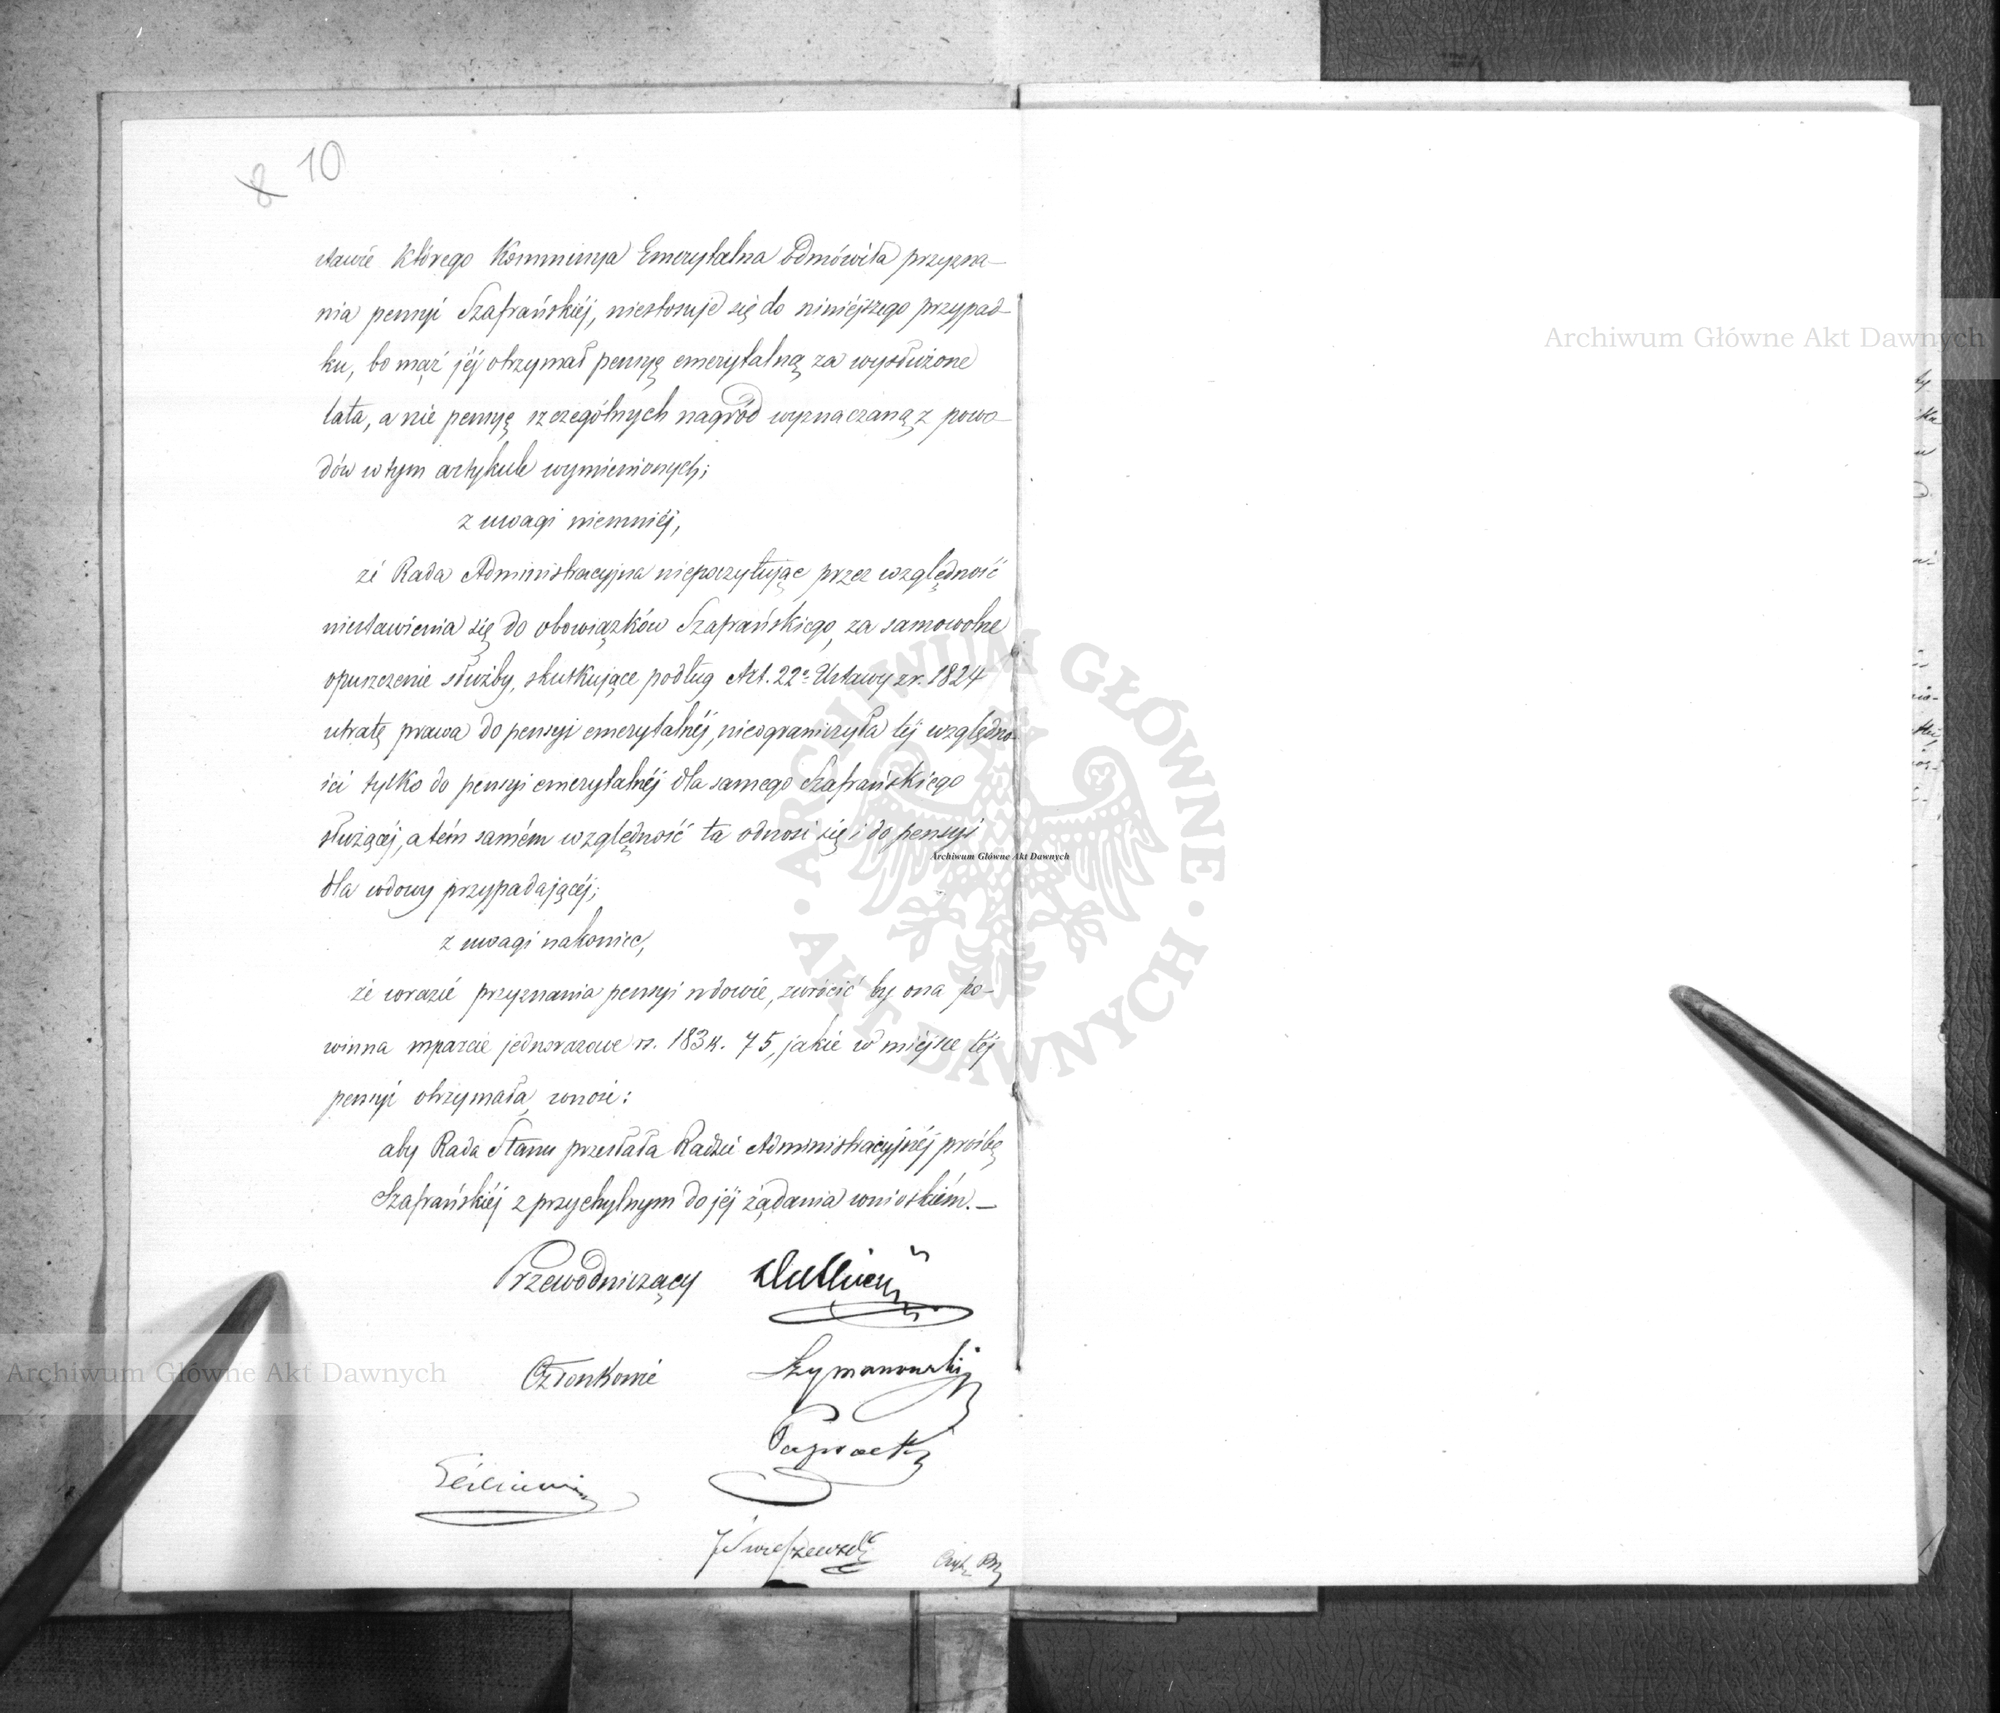 8 10
stawie którego Kommissya Emerytalna odmówiła przyzna-
nia pensyi Szafrańskiéj, niestosuje się do niniéjszego przypad-
ku, bo mąż jéj otrzymał pensyę emerytalną za wysłużone
lata, a nie pensyę szczególnych nagród wyznaczaną z powo-
dów w tym artykule wymienionych;
z uwagi niemniéj,
że Rada Administracyjna niepoczytując przez względność
niestawienia się do obowiązków Szafrańskiego, za samowolne
opuszczenie służby, skutkujące podług Art. 22º Ustawy z r. 1824
utratę prawa do pensyi emerytalnéj, nieograniczyła téj względno-
ści tylko do pensyi emerytalnéj dla samego Szafrańskiego
służącéj, a tém samém względność ta odnosi się i do pensyi
dla wdowy przypadającéj;
z uwagi nakoniec,
że w razie przyznania pensyi wdowie, zwrócić by ona po-
winna wparcie jednorazowe rs. 183 k. 75, jakie w miéjsce téj
pensyi otrzymała, wnosi:
aby Rada Stanu przesłała Radzie Administracyjnéj prośbę
Szafrańskiéj z przychylnym do jéj żądania wnioskiém.-
Przewodniczący
Członkowie Szymanowski
Archiwum Główne Akt Dawnych
Archiwum Główne Akt Dawnych
Archiwum Główne Akt Dawnych
ARCHIWUM GŁÓWNE
AKT DAWNYCH